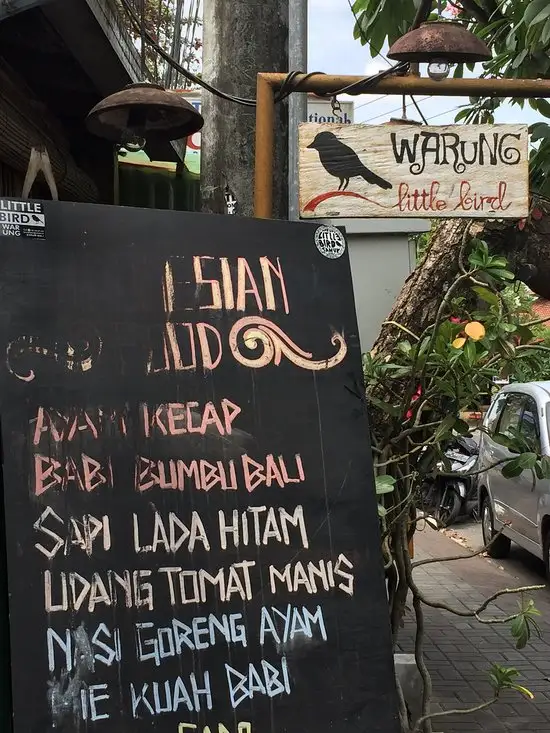 tionak
WARUNG
little bird
LITTLE
BIRD
WAR
UNG
LITTLE
BIRD
ESIAN
OOD
AYAM KECAP
BABI BUMBU BALI
SAPI LADA HITAM
UDANG TOMAT MANIS
NASI GORENG AYAM
MIE KUAH BABI